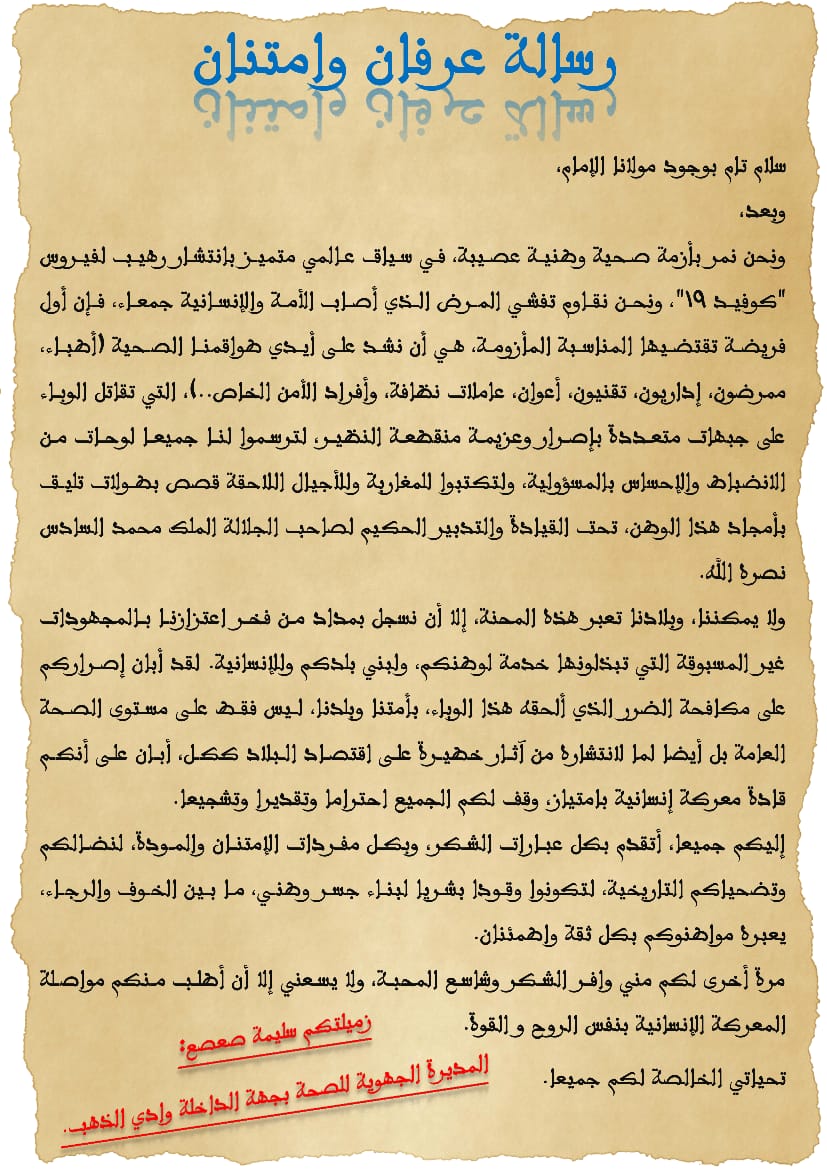 رسالة عرفان وامتنان
سلام تام بوجود مولانا الإمام،
وبعد،
ونحن نمر بأزمة صحية وطنية عصيبة، في سياق عالمي متميز بانتشار رهيب لفيروس
"كوفيد ١٩"، ونحن نقاوم تفشي المرض الذي أصاب الأمة والإنسانية جمعاء، فإن أول
فريضة تقتضيها المناسبة المأزومة، هي أن نشد على أيدي طواقمنا الصحية (أطباء،
ممرضون، إداريون، تقنيون، أعوان، عاملات نظافة، وأفراد الأمن الخاص..)، التي تقاتل الوباء
على جبهات متعددة بإصرار وعزيمة منقطعة النظير، لترسموا لنا جميعا لوحات من
الانضباط والإحساس بالمسؤولية، ولتكتبوا للمغاربة وللأجيال اللاحقة قصص بطولات تليق
بأمجاد هذا الوطن، تحت القيادة والتدبير الحكيم لصاحب الجلالة الملك محمد السادس
نصره الله.
ولا يمكننا، وبلادنا تعبر هذه المحنة، إلا أن نسجل بمداد من فخر اعتزازنا بالمجهودات
غير المسبوقة التي تبذلونها خدمة لوطنكم، ولبني بلدكم وللإنسانية. لقد أبان إصراركم
على مكافحة الضرر الذي ألحقه هذا الوباء، بأمتنا وبلدنا، ليس فقط على مستوى الصحة
العامة بل أيضا لما لانتشاره من آثار خطيرة على اقتصاد البلاد ككل، أبان على أنكم
قادة معركة إنسانية بامتياز، وقف لكم الجميع احتراما وتقديرا وتشجيعا.
إليكم جميعا، أتقدم بكل عبارات الشكر، وبكل مفردات الإمتنان والمودة، لنضالكم
وتضحياكم التاريخية، لتكونوا وقودا بشريا لبناء جسر وطني، ما بين الخوف والرجاء،
يعبره مواطنوكم بكل ثقة واطمئنان.
مرة أخرى لكم مني وافر الشكر وشاسع المحبة، ولا يسعني إلا أن أطلب منكم مواصلة
المعركة الإنسانية بنفس الروح و القوة.
تحياتي الخالصة لكم جميعا.
زميلتكم سليمة صعصع:
المديرة الجهوية للصحة بجهة الداخلة وادي الذهب.